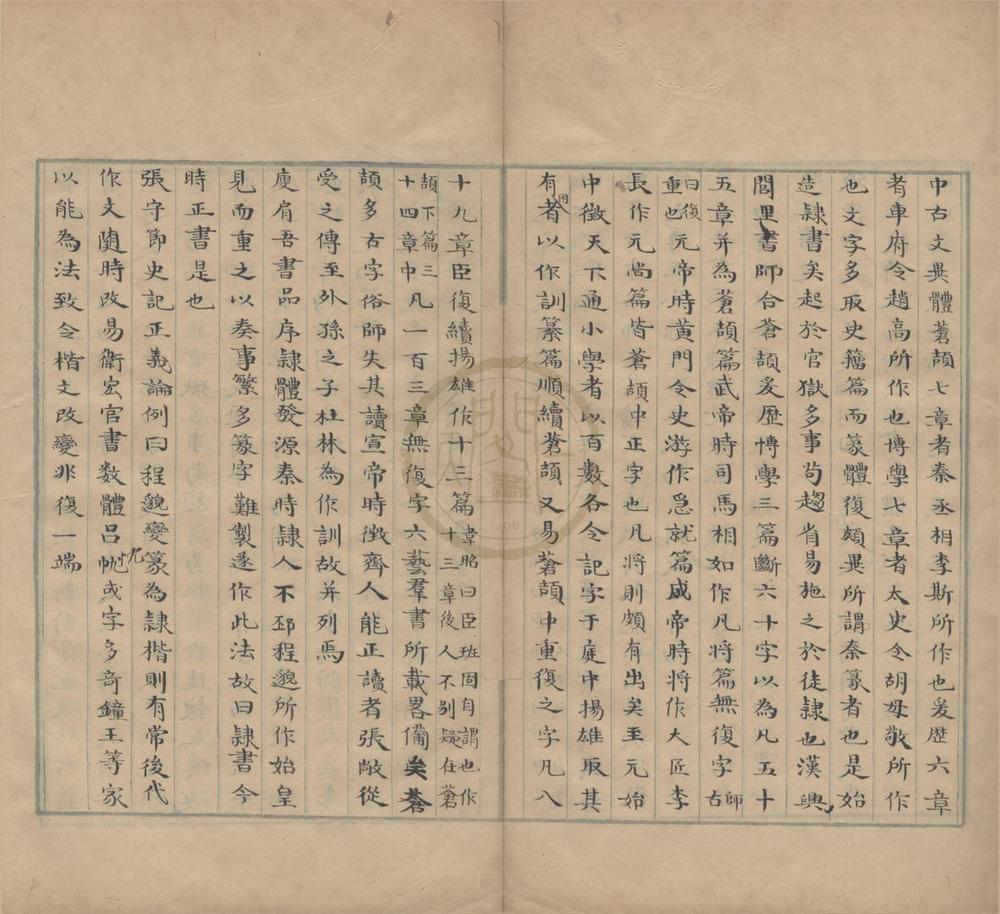 中古文異體蒼頡七章者秦丞相李斯所作也爰歴六章
者車府令趙高所作也博學七章者太史令胡毋敬所作
也文字多取史籀篇而篆體復頗異所謂秦篆者也是始
造隷書矣起於官獄多事茍趨省易施之於徒隷也漢興
閭里書師合蒼頡爰歴博學三篇斷六十字以為凡五十
五章并為蒼頡篇武帝時司馬相如作凡將篇無復字師古
曰復重也元帝時黄門令史游作急就篇成帝時將作大匠李
長作元尚篇皆蒼頡中正字也凡將則頗有出矣至元始
中徵天下通小學者以百數各令記字于庭中揚雄取其
有用者以作訓纂篇順續蒼頡又易蒼頡中重復之字凡八
十九章臣復續揚雄作十三篇韋昭曰臣班固自謂也作十三章後人不别疑在蒼
頡下篇三十四章中凡一百三章無復字六藝羣書所載畧備矣蒼
頡多古字俗師失其讀宣帝時徵齊人能正讀者張敞從
受之傳至外孫之子杜林為作訓故并列焉
庾肩吾書品序隷體發源秦時隷人下邳程邈所作始皇
見而重之以奏事繁多篆字難製遂作此法故曰隷書今
時正書是也
張守節史記正義論例曰程邈變篆為隷楷則有常後代
作文隨時改易衛宏官書数體吕忱或字多奇鐘王等家
以能為法致令楷文改變非復一端